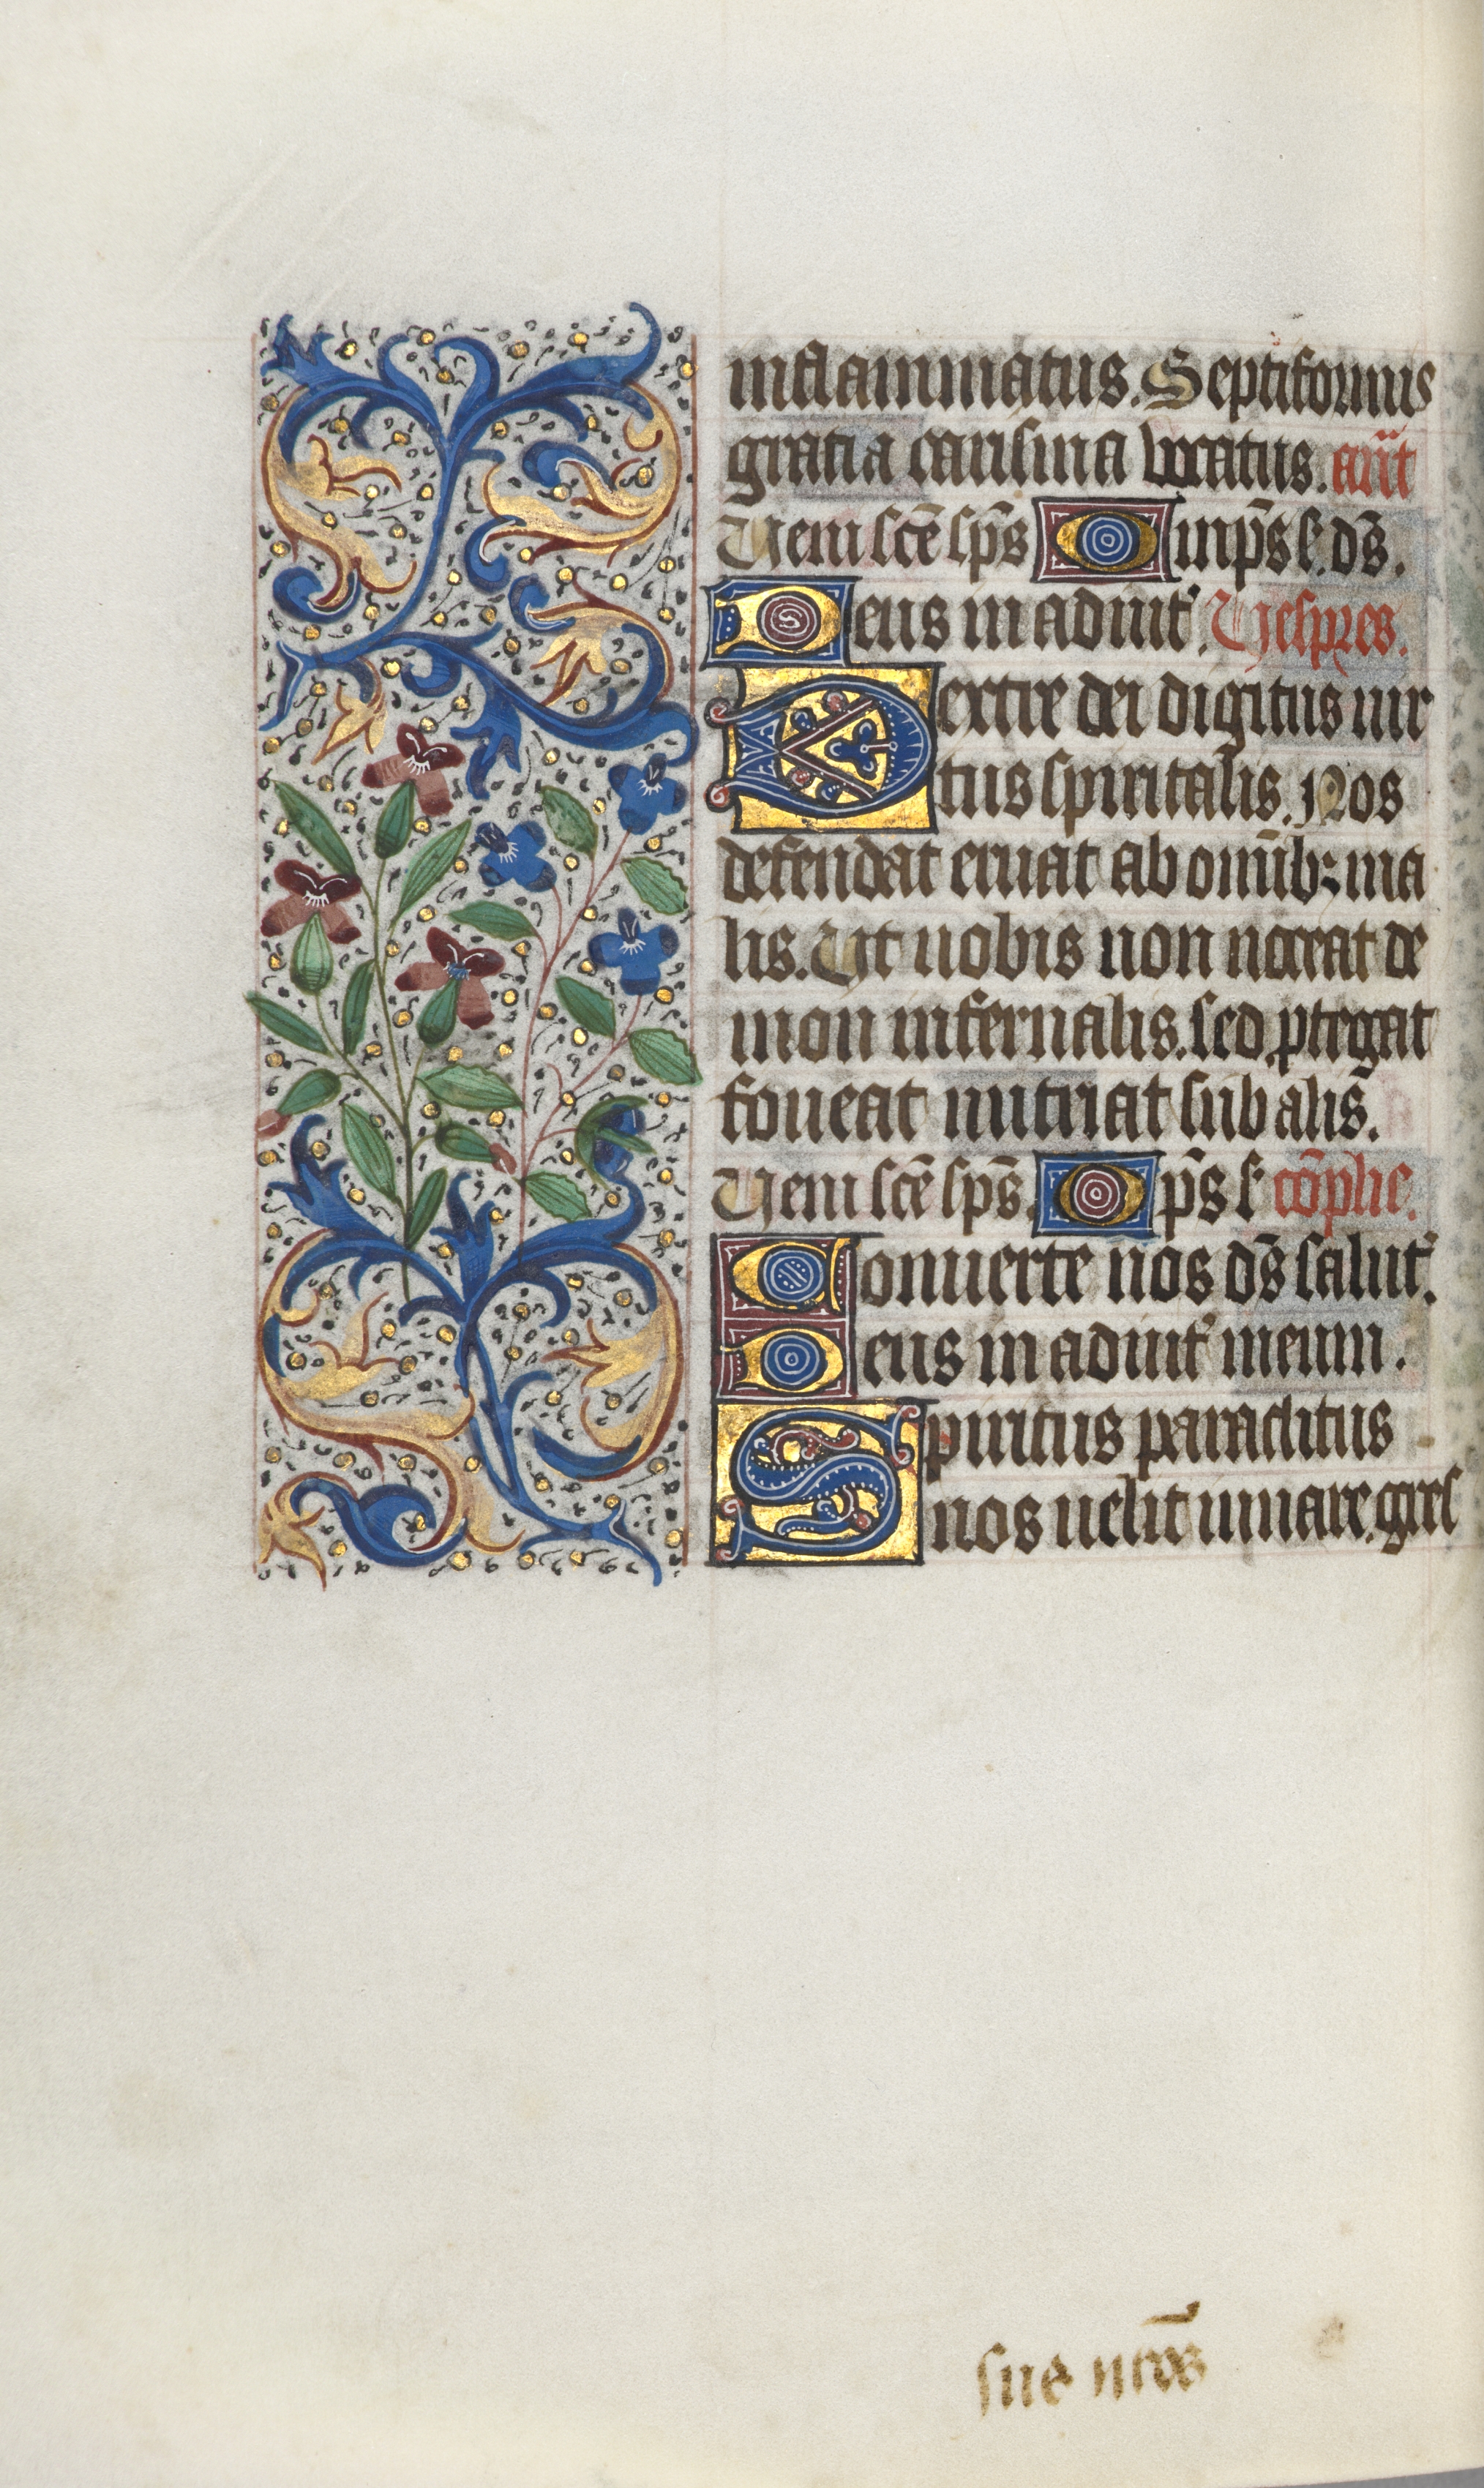 inflammatus. Septiformis
gratia carisma vocatus. añt
Veni scē sp̄s Omp̄s s. ds̄.
Deus in adiuit'. Vespres.
Dextre dei digitus uir
tus spiritalis. Nos
defendat eruat ab omīb; ma
lis. Ut nobis non noceat de
mon infernalis. sed ptegat
foueat nutriat sub alis.
Veni scē sp̄s. Op̄s s cōplie.
Conuerte nos ds̄ salut'.
Deus in adiuit' meum.
Spiritus paraclitus
nos uelit iuuare. gres
sue